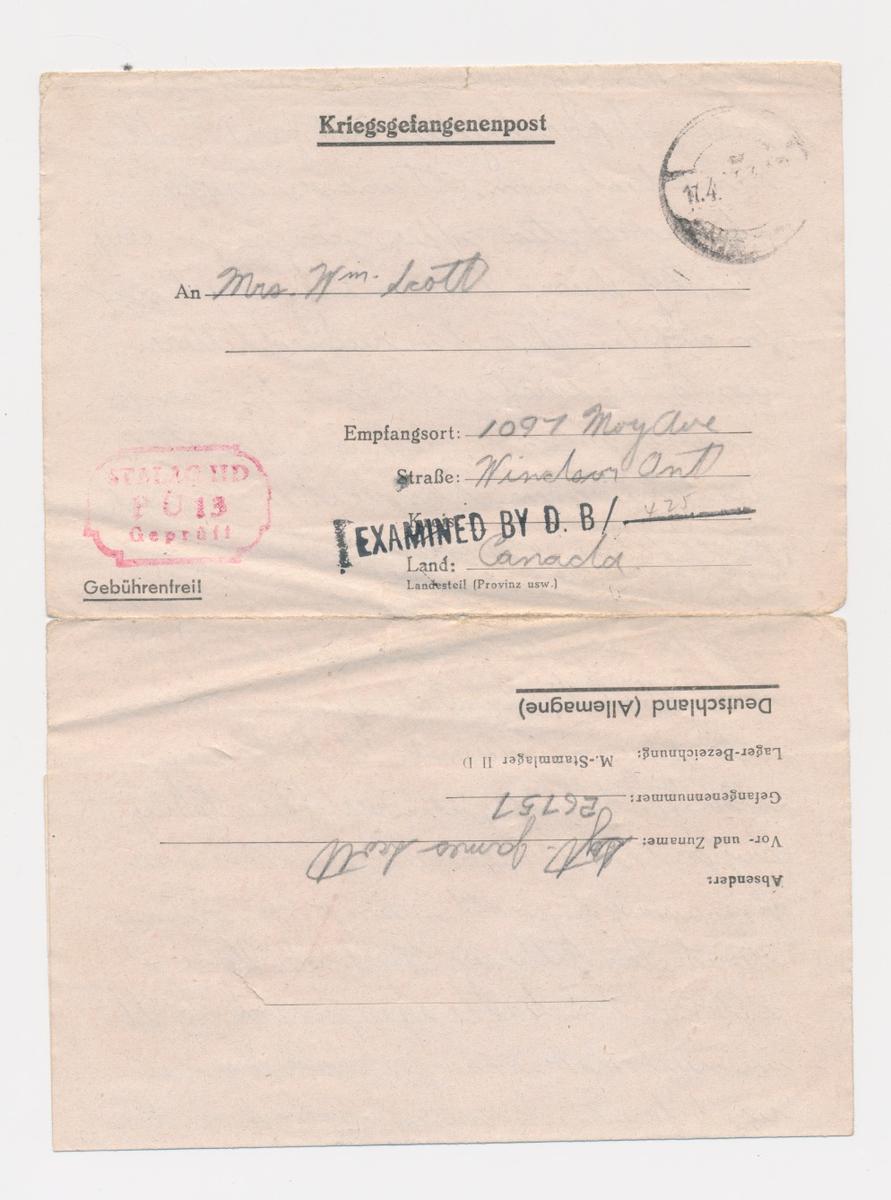 Kriegsgefangenenpost
17.4.
An Mrs. Wm. Scott
Empfangsort: 1097 Moy Ave
Straße: Windsor Ont
Kreis:
EXAMINED BY D. B/ 425
Land: Canada
Landesteil (Provinz usw.)
STALAG IID
PÜ 13
Geprüft
Gebührenfrei!
Absender:
Vor- und Zuname: Sgt. James Scott
Gefangenennummer: 26757
Lager-Bezeichnung: M.-Stammlager II D
Deutschland (Allemagne)